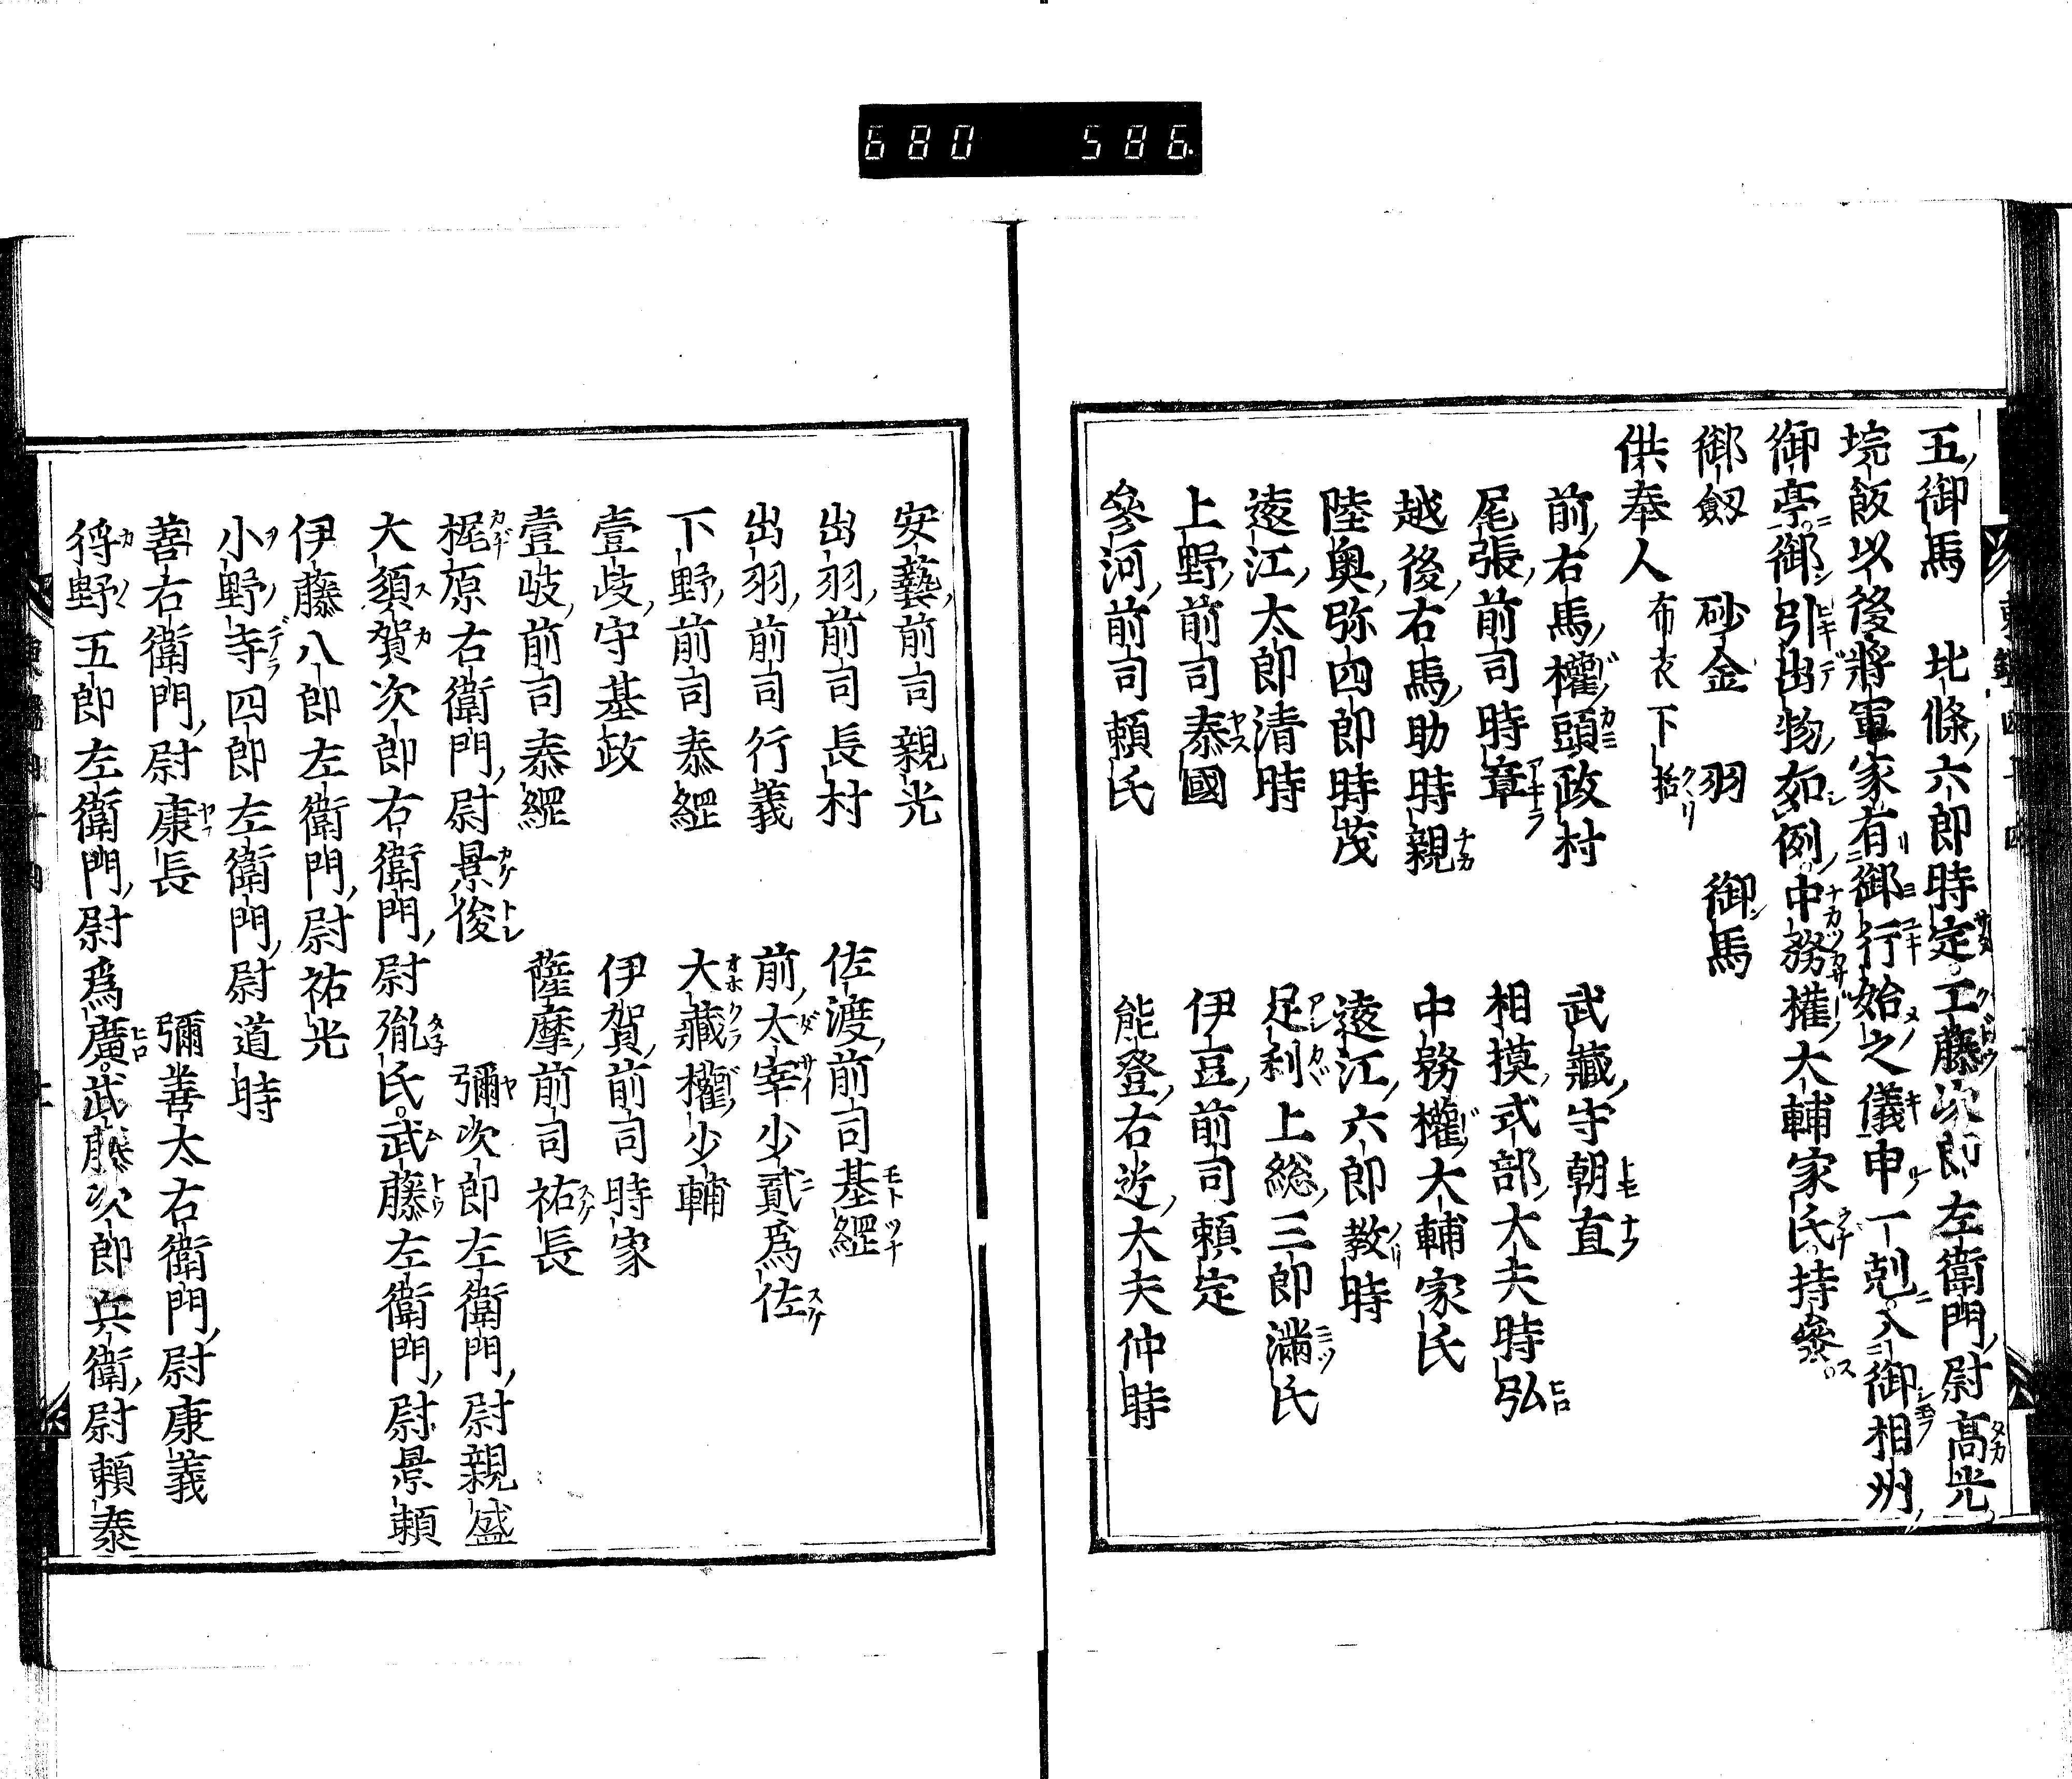 680 586
五御馬 北條六郎時定工藤次郎左衛門尉高光
垸飯以後將軍家有御行始之儀申一剋入御相州
御亭御引出物如例中務權大輔家氏持參
御釼 砂金 羽 御馬
供奉人 布衣下括
前右馬權頭政村 武藏守朝直
尾張前司時章 相摸式部大夫時弘
越後右馬助時親 中務權大輔家氏
陸奥弥四郎時茂 遠江六郎教時
遠江太郎清時 足利上総三郎滿氏
上野前司泰國 伊豆前司頼定
參河前司頼氏 能登右近大夫仲時
安藝前司親光
出羽前司長村 佐渡前司基綱
出羽前司行義 前太宰少貳爲佐
下野前司泰綱 大藏權少輔
壹岐守基政 伊賀前司時家
壹岐前司泰綱 薩摩前司祐長
梶原右衛門尉景俊 彌次郎左衛門尉親盛
大須賀次郎右衛門尉胤氏武藤左衛門尉景頼
伊藤八郎左衛門尉祐光
小野寺四郎左衛門尉道時
善右衛門尉康長 彌善太右衛門尉康義
狩野五郎左衛門尉爲廣武藤次郎兵衛尉頼泰